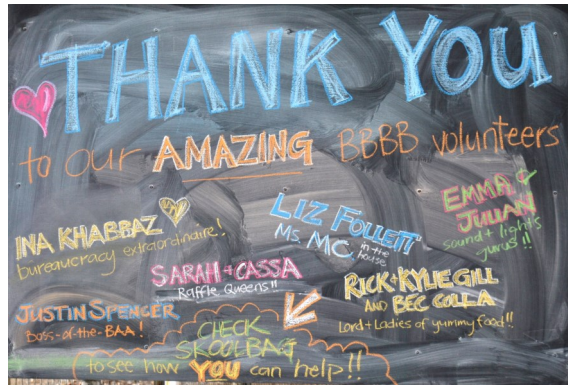 THANK YOU
to our AMAZING BBBB volunteers
INA KHABBAZ
bureaucracy extraordinaire!
LIZ FOLLETT
Ms. MC. in the house
EMMA &
JULIAN
sound + lights
gurus!!
SARAH + CASSA
Raffle Queens!!
RICK + KYLIE GILL
AND BEC COLLA
Lord + Ladies of yummy food!!
JUSTIN SPENCER
Boss-of-the-BAA!
CHECK
SKOOLBAG
to see how YOU can help!!